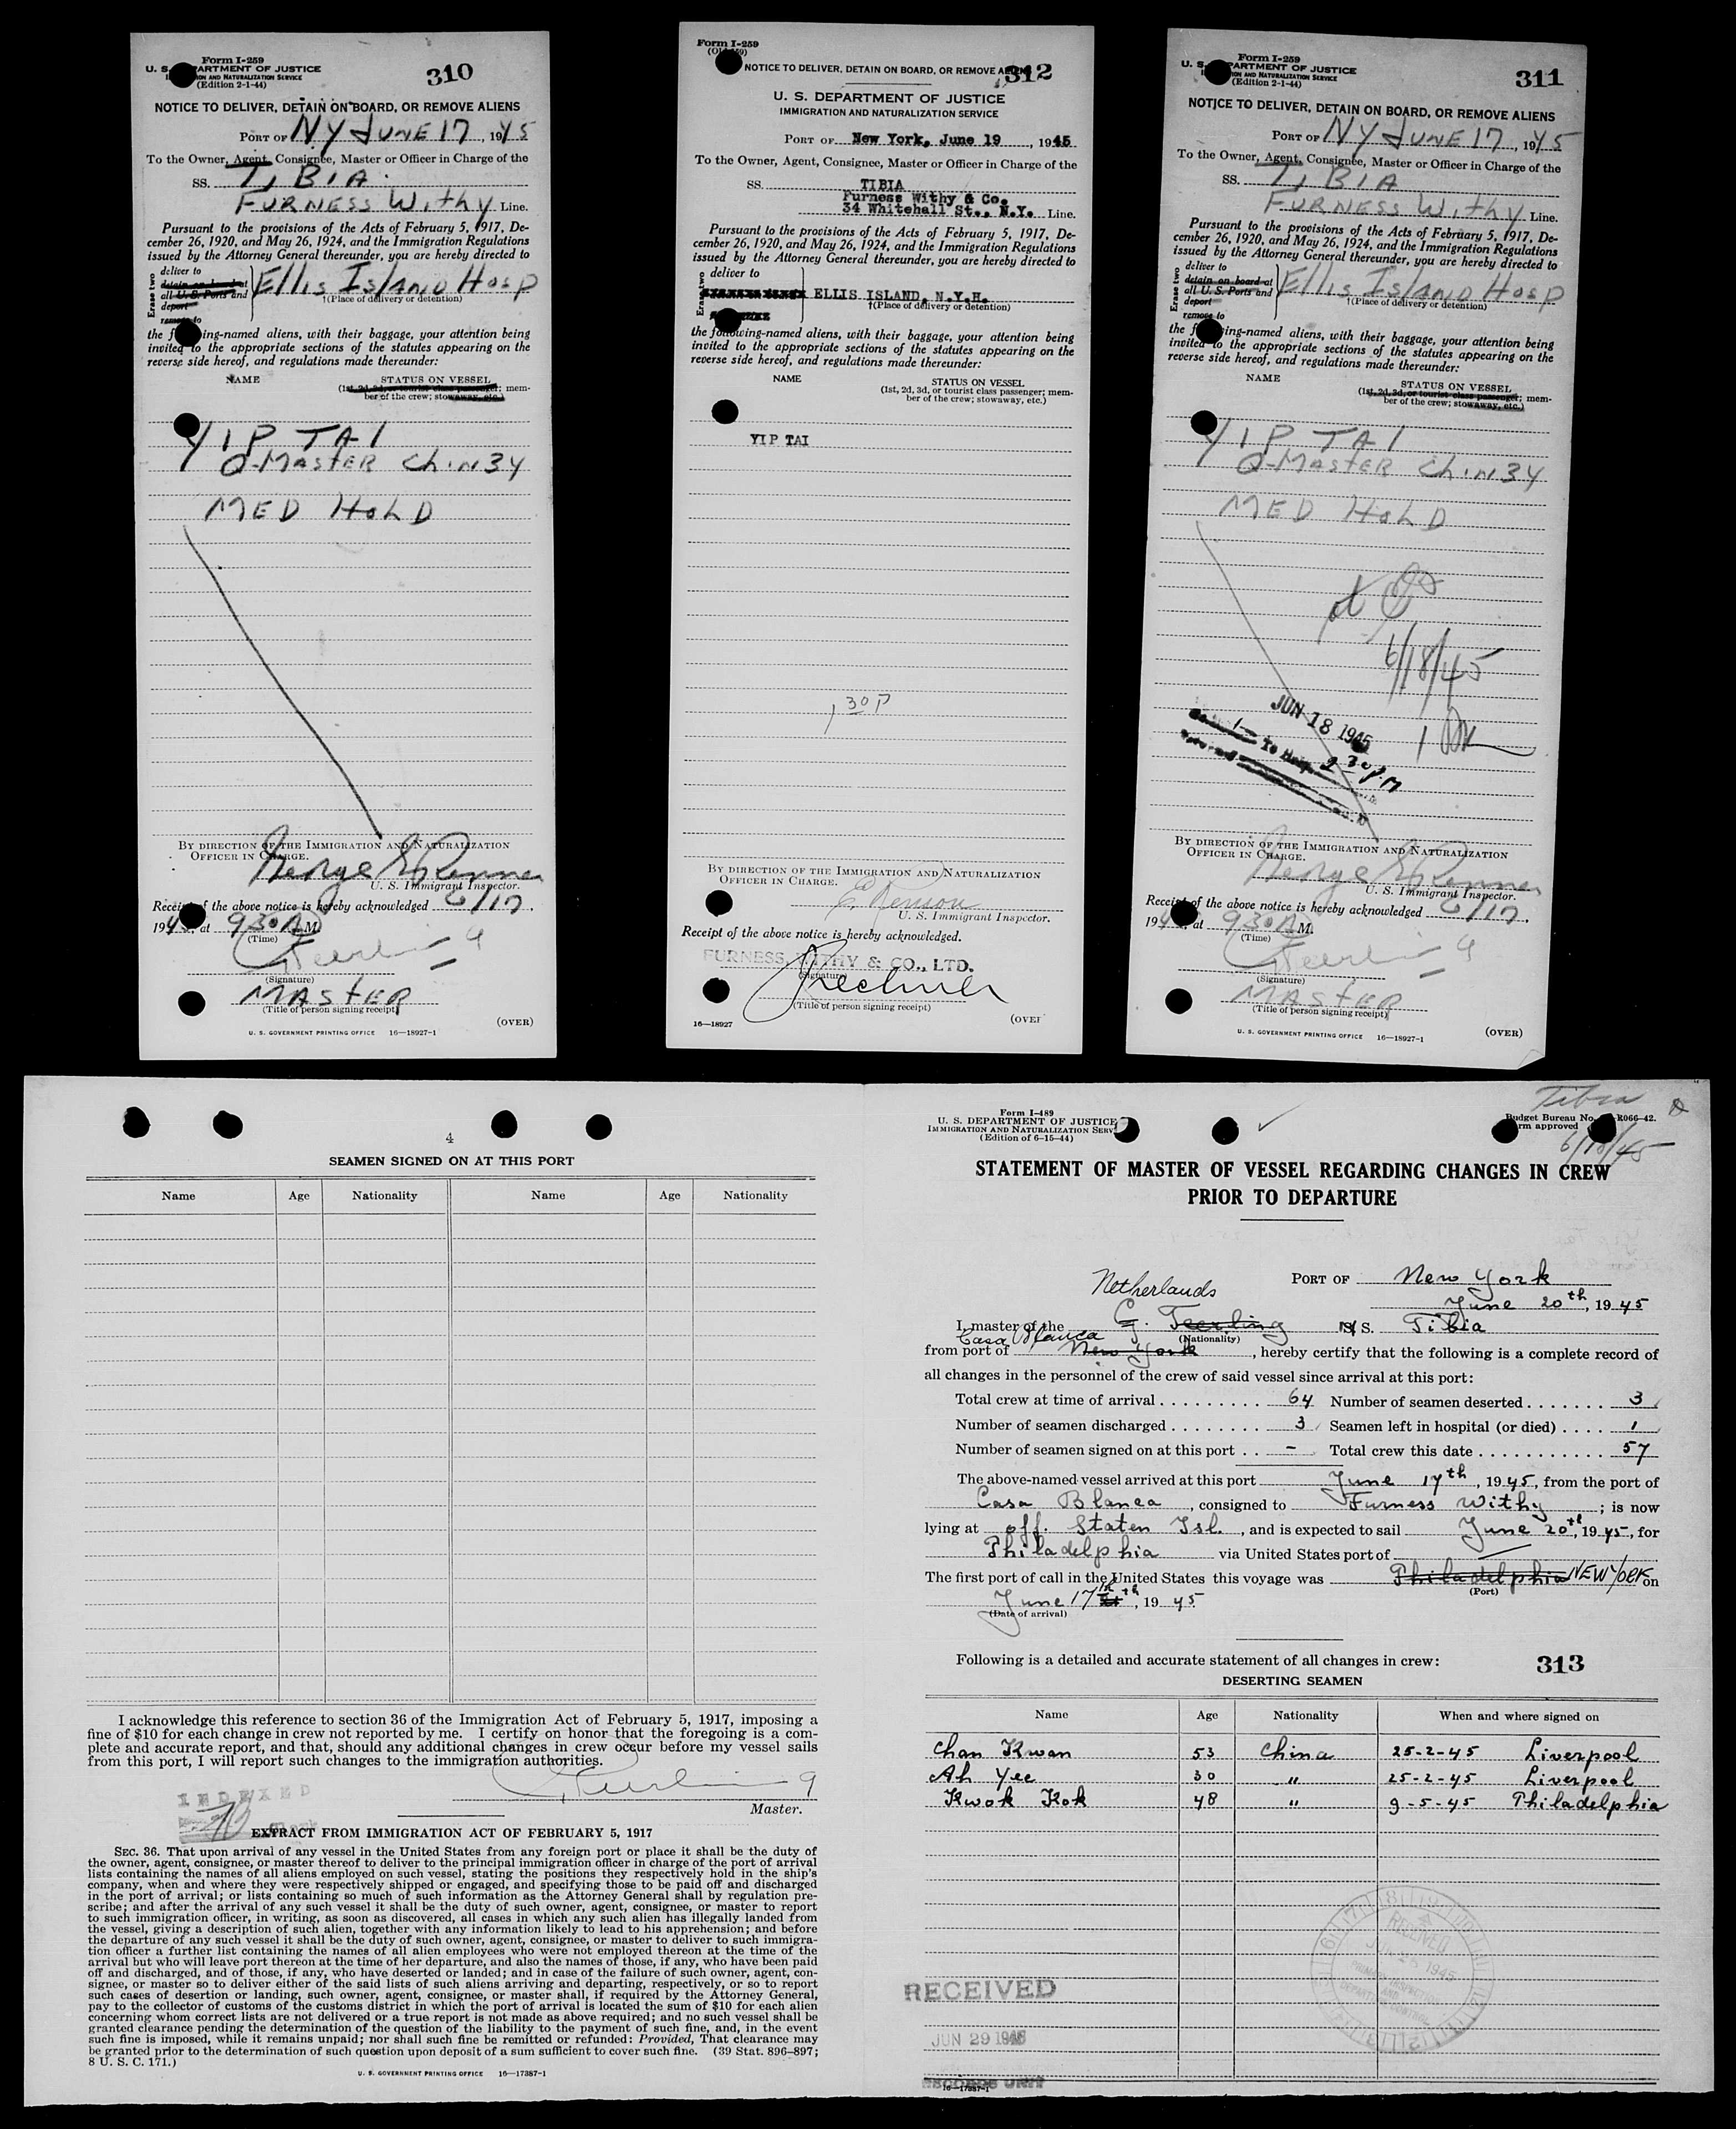 Form I-259
U. S. DEPARTMENT OF JUSTICE
IMMIGRATION AND NATURALIZATION SERVICE
(Edition 2-1-44)
310
NOTICE TO DELIVER, DETAIN ON BOARD, OR REMOVE ALIENS
PORT OF NY JUNE 17, 1945
To the Owner, Agent, Consignee, Master or Officer in Charge of the
SS. TIBIA
FURNESS Withy Line.
Pursuant to the provisions of the Acts of February 5, 1917, De-
cember 26, 1920, and May 26, 1924, and the Immigration Regulations
issued by the Attorney General thereunder, you are hereby directed to
Erase two
deliver to
detain on board at
all U.S. Ports and
deport
remove to
Ellis Island Hosp
†(Place of delivery or detention)
the following-named aliens, with their baggage, your attention being
invited to the appropriate sections of the statutes appearing on the
reverse side hereof, and regulations made thereunder:
NAME STATUS ON VESSEL
(1st, 2d, 3d, or tourist class passenger; mem-
ber of the crew; stowaway, etc.)
YIP TAI
Q-MASTER Chin 34
MED HOLD
BY DIRECTION OF THE IMMIGRATION AND NATURALIZATION
OFFICER IN CHARGE.
U. S. Immigrant Inspector.
Receipt of the above notice is hereby acknowledged 6/17,
1945, at 930 A M.
(Time)
(Signature)
MASTER
(Title of person signing receipt)
(OVER)
U. S. GOVERNMENT PRINTING OFFICE 16—18927-1
Form I-259
312
NOTICE TO DELIVER, DETAIN ON BOARD, OR REMOVE ALIENS
U. S. DEPARTMENT OF JUSTICE
IMMIGRATION AND NATURALIZATION SERVICE
PORT OF New York, June 19, 1945
To the Owner, Agent, Consignee, Master or Officer in Charge of the
SS. TIBIA
Furness Withy & Co.
34 Whitehall St., N.Y. Line.
Pursuant to the provisions of the Acts of February 5, 1917, De-
cember 26, 1920, and May 26, 1924, and the Immigration Regulations
issued by the Attorney General thereunder, you are hereby directed to
Erase two
deliver to
ELLIS ISLAND, N.Y.H.
†(Place of delivery or detention)
the following-named aliens, with their baggage, your attention being
invited to the appropriate sections of the statutes appearing on the
reverse side hereof, and regulations made thereunder:
NAME STATUS ON VESSEL
(1st, 2d, 3d, or tourist class passenger; mem-
ber of the crew; stowaway, etc.)
YIP TAI
1 30 P
BY DIRECTION OF THE IMMIGRATION AND NATURALIZATION
OFFICER IN CHARGE.
U. S. Immigrant Inspector.
Receipt of the above notice is hereby acknowledged.
FURNESS, WITHY & CO., LTD.
(Signature)
(Title of person signing receipt)
16—18927
(OVER
Form I-259
U. S. DEPARTMENT OF JUSTICE
IMMIGRATION AND NATURALIZATION SERVICE
(Edition 2-1-44)
311
NOTICE TO DELIVER, DETAIN ON BOARD, OR REMOVE ALIENS
PORT OF NY JUNE 17, 1945
To the Owner, Agent, Consignee, Master or Officer in Charge of the
SS. TIBIA
FURNESS Withy Line.
Pursuant to the provisions of the Acts of February 5, 1917, De-
cember 26, 1920, and May 26, 1924, and the Immigration Regulations
issued by the Attorney General thereunder, you are hereby directed to
Erase two
deliver to
detain on board at
all U.S. Ports and
deport
remove to
Ellis Island Hosp
†(Place of delivery or detention)
the following-named aliens, with their baggage, your attention being
invited to the appropriate sections of the statutes appearing on the
reverse side hereof, and regulations made thereunder:
NAME STATUS ON VESSEL
(1st, 2d, 3d, or tourist class passenger; mem-
ber of the crew; stowaway, etc.)
YIP TAI
Q-MASTER Chin 34
MED HOLD
6/18/45
JUN 18 1945
To Hosp. 2 30 P.M
BY DIRECTION OF THE IMMIGRATION AND NATURALIZATION
OFFICER IN CHARGE.
U. S. Immigrant Inspector.
Receipt of the above notice is hereby acknowledged 6/17,
1945, at 930 A M.
(Time)
(Signature)
MASTER
(Title of person signing receipt)
(OVER)
U. S. GOVERNMENT PRINTING OFFICE 16—18927-1
4
SEAMEN SIGNED ON AT THIS PORT
Name Age Nationality Name Age Nationality
I acknowledge this reference to section 36 of the Immigration Act of February 5, 1917, imposing a
fine of $10 for each change in crew not reported by me. I certify on honor that the foregoing is a com-
plete and accurate report, and that, should any additional changes in crew occur before my vessel sails
from this port, I will report such changes to the immigration authorities.
Master.
INDEXED
EXTRACT FROM IMMIGRATION ACT OF FEBRUARY 5, 1917
SEC. 36. That upon arrival of any vessel in the United States from any foreign port or place it shall be the duty of
the owner, agent, consignee, or master thereof to deliver to the principal immigration officer in charge of the port of arrival
lists containing the names of all aliens employed on such vessel, stating the positions they respectively hold in the ship's
company, when and where they were respectively shipped or engaged, and specifying those to be paid off and discharged
in the port of arrival; or lists containing so much of such information as the Attorney General shall by regulation pre-
scribe; and after the arrival of any such vessel it shall be the duty of such owner, agent, consignee, or master to report
to such immigration officer, in writing, as soon as discovered, all cases in which any such alien has illegally landed from
the vessel, giving a description of such alien, together with any information likely to lead to his apprehension; and before
the departure of any such vessel it shall be the duty of such owner, agent, consignee, or master to deliver to such immigra-
tion officer a further list containing the names of all alien employees who were not employed thereon at the time of the
arrival but who will leave port thereon at the time of her departure, and also the names of those, if any, who have been paid
off and discharged, and of those, if any, who have deserted or landed; and in case of the failure of such owner, agent, con-
signee, or master so to deliver either of the said lists of such aliens arriving and departing, respectively, or so to report
such cases of desertion or landing, such owner, agent, consignee, or master shall, if required by the Attorney General,
pay to the collector of customs of the customs district in which the port of arrival is located the sum of $10 for each alien
concerning whom correct lists are not delivered or a true report is not made as above required; and no such vessel shall be
granted clearance pending the determination of the question of the liability to the payment of such fine, and, in the event
such fine is imposed, while it remains unpaid; nor shall such fine be remitted or refunded: Provided, That clearance may
be granted prior to the determination of such question upon deposit of a sum sufficient to cover such fine. (39 Stat. 896-897;
8 U. S. C. 171.)
U. S. GOVERNMENT PRINTING OFFICE 16—17387-1
Form I-489
U. S. DEPARTMENT OF JUSTICE
IMMIGRATION AND NATURALIZATION SERV
(Edition of 6-15-44)
Tibia
Budget Bureau No. R066-42.
rm approved
6/18/45
STATEMENT OF MASTER OF VESSEL REGARDING CHANGES IN CREW
PRIOR TO DEPARTURE
PORT OF New York
June 20th, 1945
Netherlands
I, master of the G. Teerling S. Tibia
(Nationality)
Casa Blanca
from port of New York, hereby certify that the following is a complete record of
all changes in the personnel of the crew of said vessel since arrival at this port:
Total crew at time of arrival 64 Number of seamen deserted 3
Number of seamen discharged 3 Seamen left in hospital (or died) 1
Number of seamen signed on at this port - Total crew this date 57
The above-named vessel arrived at this port June 17th, 1945, from the port of
Casa Blanca, consigned to Furness Withy; is now
lying at off. Staten Isl., and is expected to sail June 20th, 1945, for
Philadelphia via United States port of
The first port of call in the United States this voyage was Philadelphia NEW YORK on
(Port)
June 17th, 1945
(Date of arrival)
Following is a detailed and accurate statement of all changes in crew:
313
DESERTING SEAMEN
Name Age Nationality When and where signed on
Chan Kwan 53 China 25-2-45 Liverpool
Ah Yee 30 " 25-2-45 Liverpool
Kwok Kok 48 " 9-5-45 Philadelphia
RECEIVED
1945
RECEIVED
JUN 29 1945
RECORDS UNIT
16—17387-1